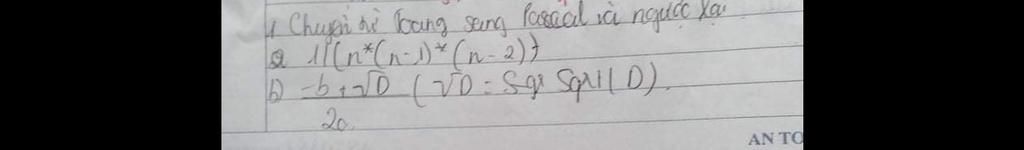 1 Chuyển từ Toang sang Pascal và ngược lại
a 1/(n*(n-1)*(n-2))
b) -b+√D (√D = Sqr Sqrt(D).
2a
AN TO